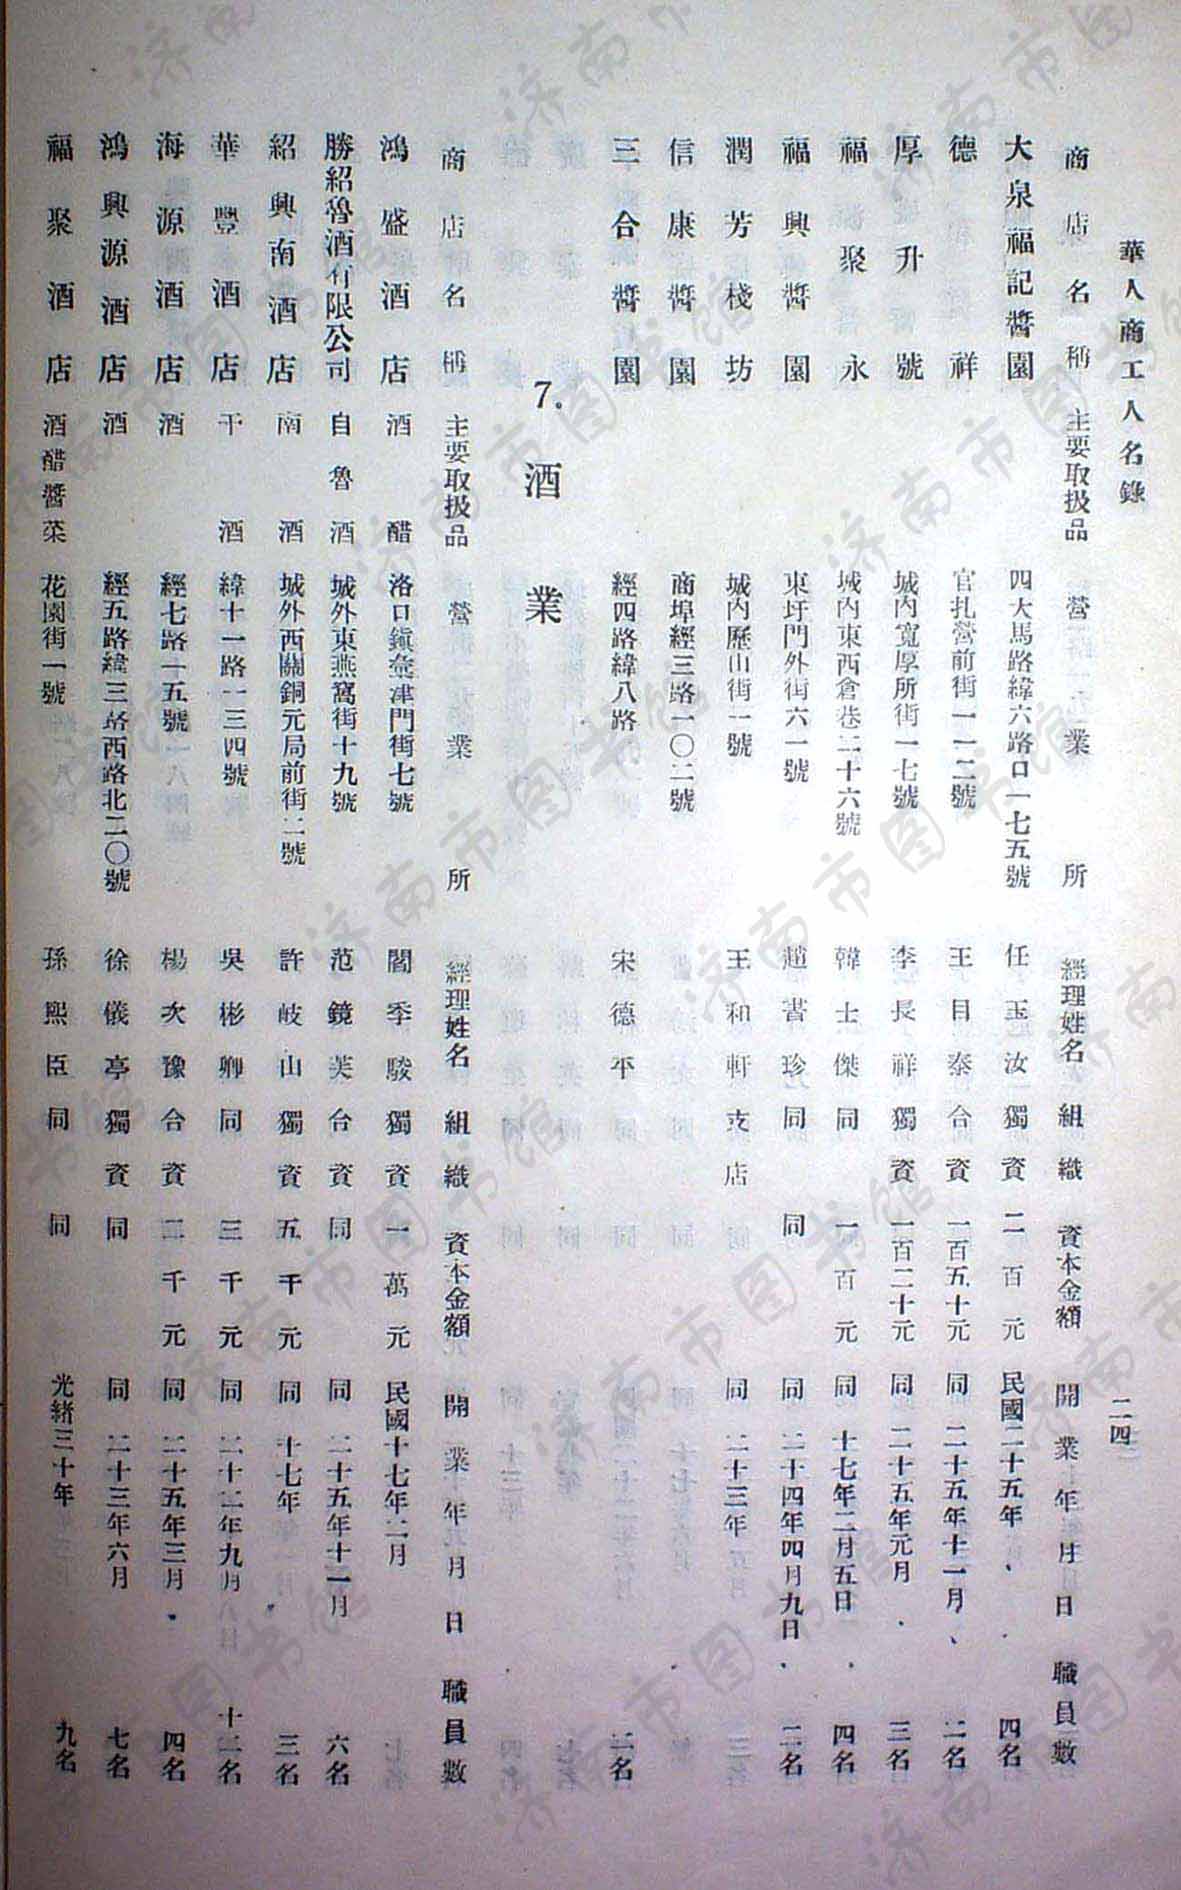 華人商工人名錄
二四
商店名稱 主要取扱品 營業所 經理姓名 組織 資本金額 開業年月日 職員數
大泉福記醬園 四大馬路緯六路口一七五號 任玉汝 獨資 二百元 民國二十五年 四名
德祥 官扎營前街一一二號 王目泰 合資 一百五十元 同 二十五年十一月 二名
厚升號 城內寬厚所街一七號 李長祥 獨資 一百二十元 同 二十五年元月 三名
福聚永 城內東西倉巷二十六號 韓士傑 同 一百元 同 十七年二月五日 四名
福興醬園 東圩門外街六一號 趙書珍 同 同 同 二十四年四月九日 二名
潤芳棧坊 城內歷山街一號 王和軒 支店 同 二十三年
信康醬園 商埠經三路一〇二號
三合醬園 經四路緯八路 宋德平 二名
7. 酒業
商店名稱 主要取扱品 營業所 經理姓名 組織 資本金額 開業年月日 職員數
鴻盛酒店 酒醋 洛口鎮 津門街七號 閻季駿 獨資 一萬元 民國十七年二月
勝紹魯酒有限公司 自魯酒 城外東燕窩街十九號 范鏡芙 合資 同 同 二十五年十一月 六名
紹興南酒店 南酒 城外西關銅元局前街二號 許岐山 獨資 五千元 同 十七年 三名
華豐酒店 干酒 緯十一路一三四號 吳彬卿 同 三千元 同 二十二年九月 十二名
海源酒店 酒 經七路十五號 楊次豫 合資 二千元 同 二十五年三月 四名
鴻興源酒店 酒 經五路緯三路西路北二〇號 徐儀亭 獨資 同 同 二十三年六月 七名
福聚酒店 酒醋醬菜 花園街一號 孫熙臣 同 同 光緒三十年 九名